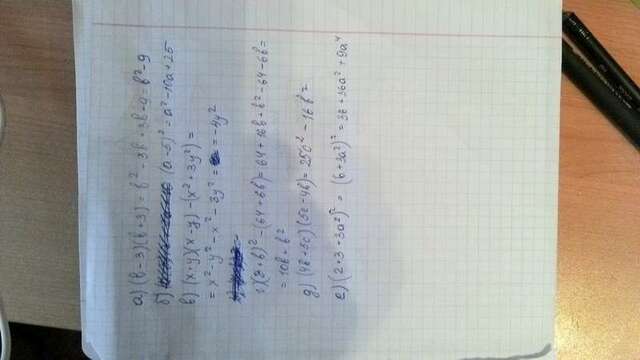 а) (b-3)(b+3) = b² - 3b + 3b - 9 = b² - 9
б) (a-5)² = a² - 10a + 25
в) (x+y)(x-y) - (x² + 3y²) =
= x² - y² - x² - 3y² = = -4y²
г) (8+b)² - (64+6b) = 64 + 16b + b² - 64 - 6b =
= 10b + b²
д) (4b+5c)(5c-4b) = 25c² - 16b²
е) (2·3+3a²)² = (6+3a²)² = 36 + 36a² + 9a⁴